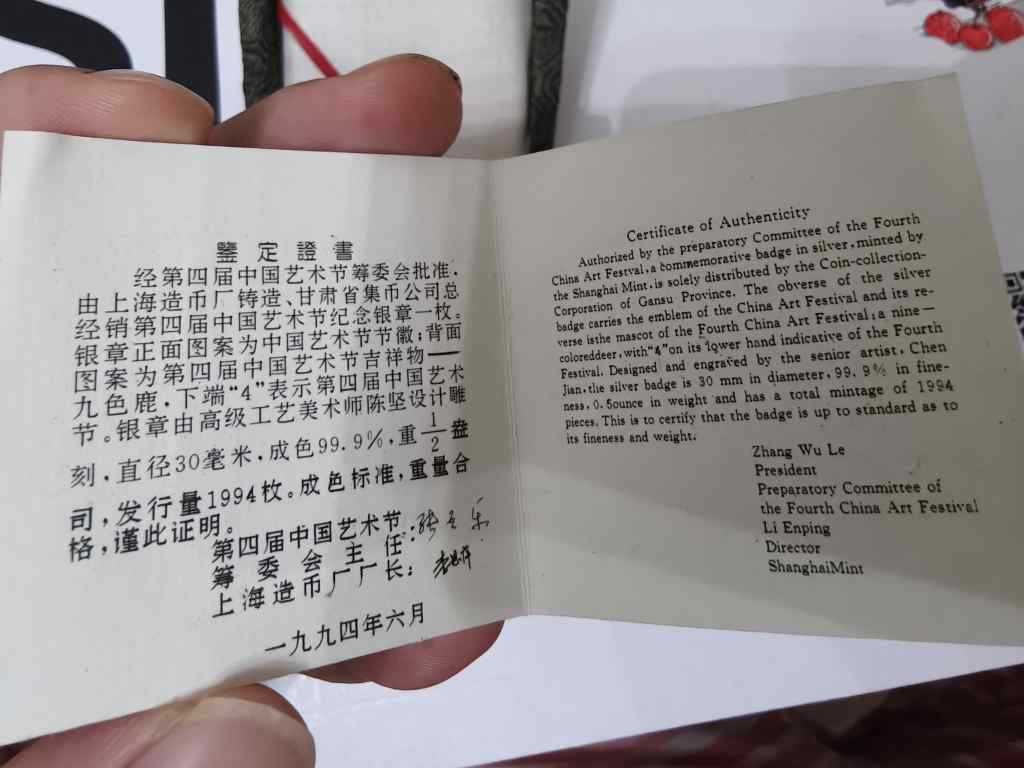 鉴定證書
经第四届中国艺术节筹委会批准，
由上海造币厂铸造、甘肃省集币公司总
经销第四届中国艺术节纪念银章一枚。
银章正面图案为中国艺术节节徽；背面
图案为第四届中国艺术节吉祥物——
九色鹿，下端“4”表示第四届中国艺术
节。银章由高级工艺美术师陈坚设计雕
刻，直径30毫米，成色99.9%，重1/2盎
司，发行量1994枚。成色标准，重量合
格，谨此证明。
第四届中国艺术节
筹委会主任：张吾乐
上海造币厂厂长：
一九九四年六月
Certificate of Authenticity
Authorized by the preparatory Committee of the Fourth
China Art Festval,a bommemorative badge in silver,minted by
the Shanghai Mint,is solely distributed by the Coin-collection-
Corporation of Gansu Province. The obverse of the silver
badge carries the emblem of the China Art Festival and its re-
verse isthe mascot of the Fourth China Art Festival;a nine—
coloreddeer,with“4”on its lower hand indicative of the Fourth
Festival. Designed and engraved by the senior artist, Chen
Jian,the silver badge is 30 mm in diameter,99.9% in fine-
ness,0.5ounce in weight and has a total mintage of 1994
pieces. This is to certify that the badge is up to standard as to
its fineness and weight.
Zhang Wu Le
President
Preparatory Committee of
the Fourth China Art Festival
Li Enping
Director
ShanghaiMint